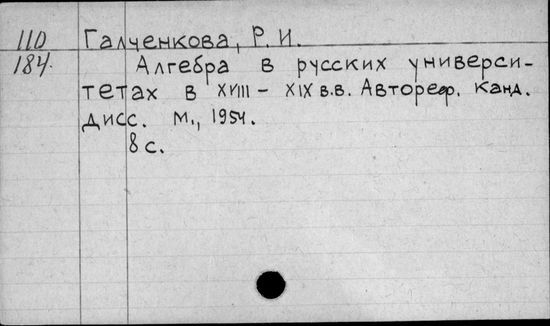 110 Галченкова, Р. И.
184. Алгебра в русских универси-
тетах в XVIII – XIX в.в. Автореф. канд.
дисс. М., 1954.
8 с.